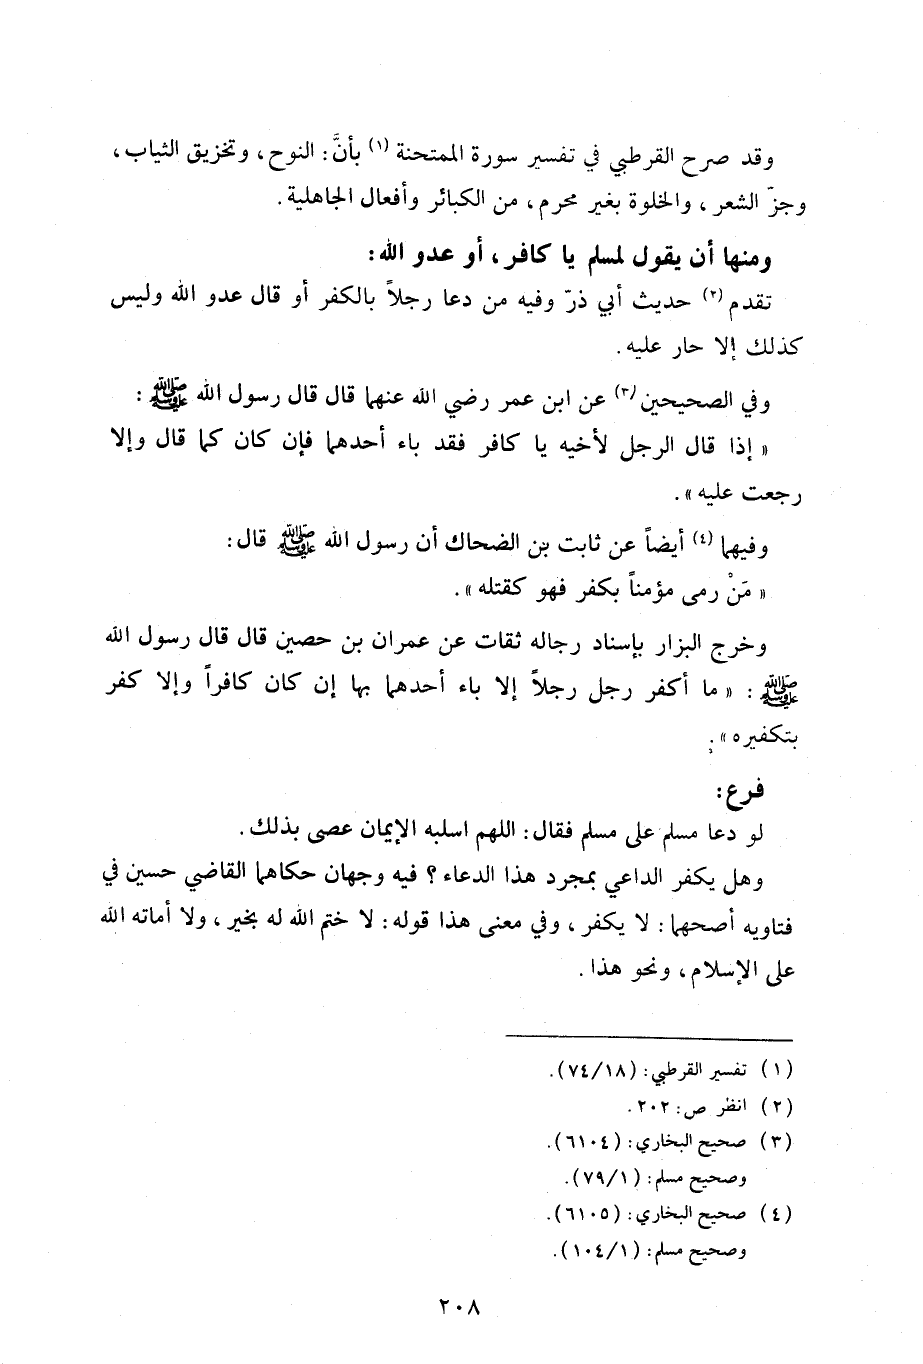 وقد صرح القرطبي في تفسير سورة الممتحنة (١) بأنَّ: النوح، وتخزيق الثياب،
وجزّ الشعر، والخلوة بغير محرم، من الكبائر وأفعال الجاهلية.
ومنها أن يقول لمسلم يا كافر، أو عدو الله:
تقدم (٢) حديث أبي ذرّ وفيه من دعا رجلاً بالكفر أو قال عدو الله وليس
كذلك إلا حار عليه.
وفي الصحيحين (٣) عن ابن عمر رضي الله عنهما قال قال رسول الله ﷺ :
« إذا قال الرجل لأخيه يا كافر فقد باء أحدهما فإن كان كما قال وإلا
رجعت عليه ».
وفيهما (٤) أيضاً عن ثابت بن الضحاك أن رسول الله ﷺ قال:
« مَنْ رمى مؤمناً بكفر فهو كقتله ».
وخرج البزار بإسناد رجاله ثقات عن عمران بن حصين قال قال رسول الله
ﷺ : « ما أكفر رجل رجلاً إلا باء أحدهما بها إن كان كافراً وإلا كفر
بتكفيره ».
فرع:
لو دعا مسلم على مسلم فقال: اللهم اسلبه الإيمان عصى بذلك.
وهل يكفر الداعي بمجرد هذا الدعاء؟ فيه وجهان حكاهما القاضي حسين في
فتاويه أصحهما: لا يكفر، وفي معنى هذا قوله: لا ختم الله له بخير، ولا أماته الله
على الإسلام، ونحو هذا.
(١) تفسير القرطبي: (٧٤/١٨).
(٢) انظر ص: ٢٠٢.
(٣) صحيح البخاري: (٦١٠٤).
وصحيح مسلم: (٧٩/١).
(٤) صحيح البخاري: (٦١٠٥).
وصحيح مسلم: (١٠٤/١).
٢٠٨